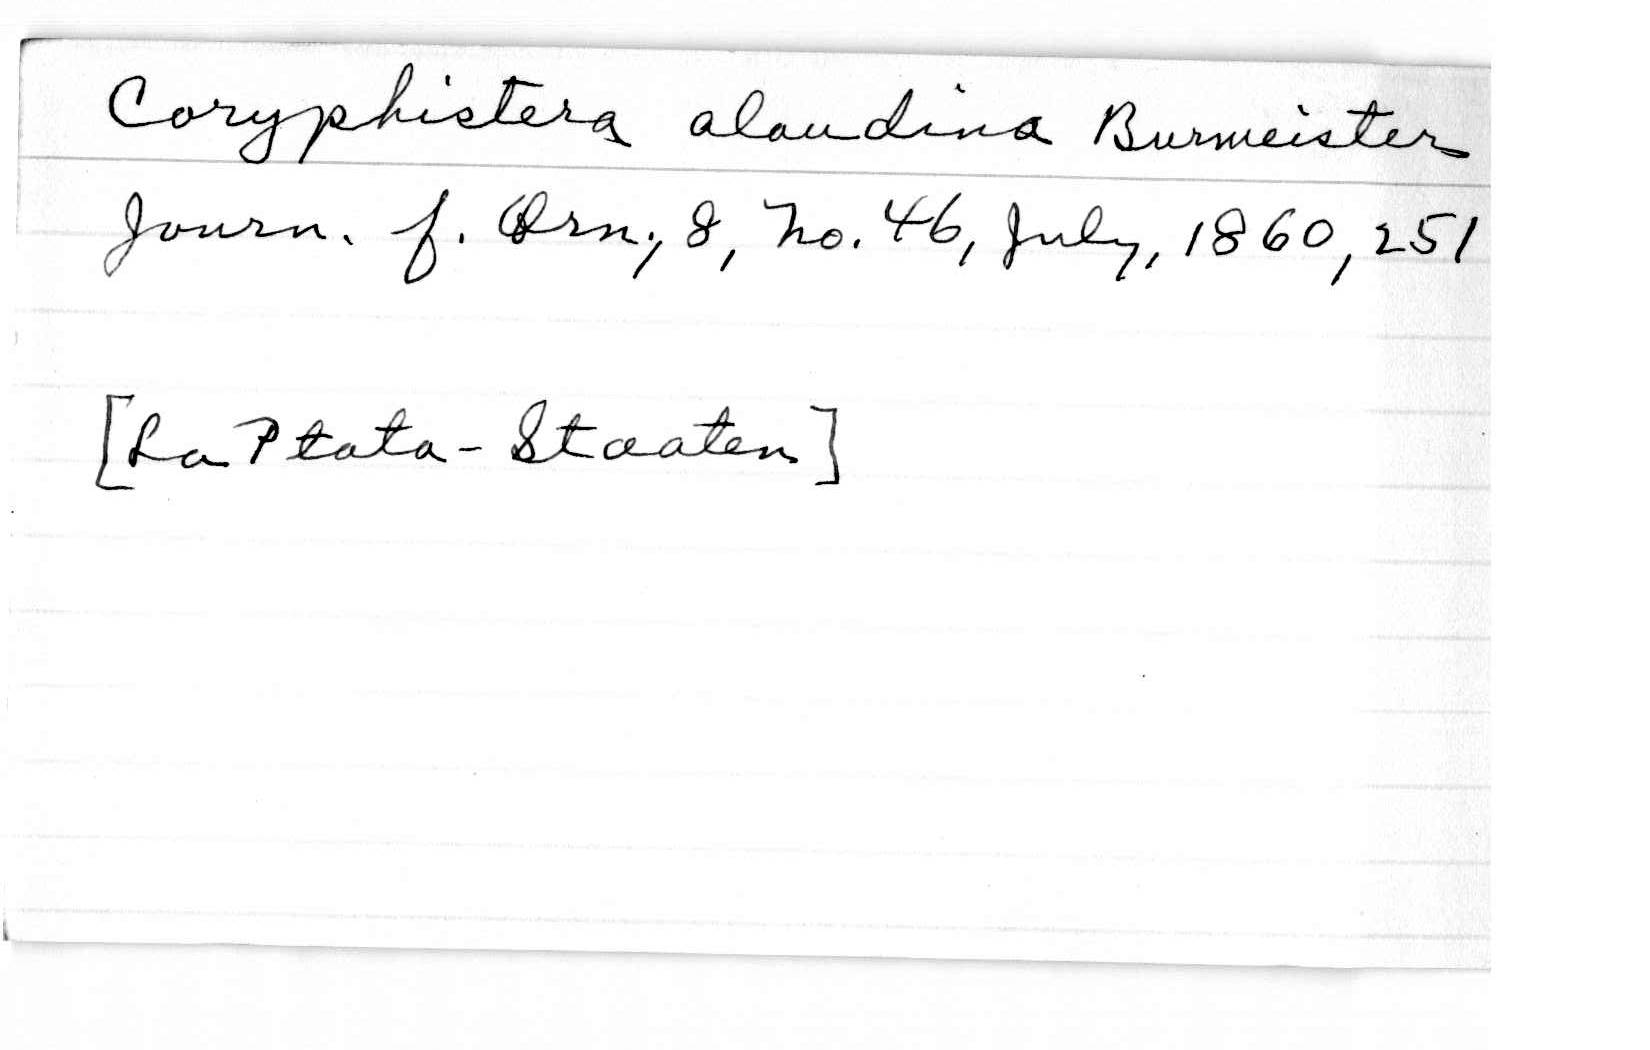 Coryphistera alaudina Burmeister
Journ. f. Orn., 8, no. 46, July, 1860, 251
[La Plata-Staaten]